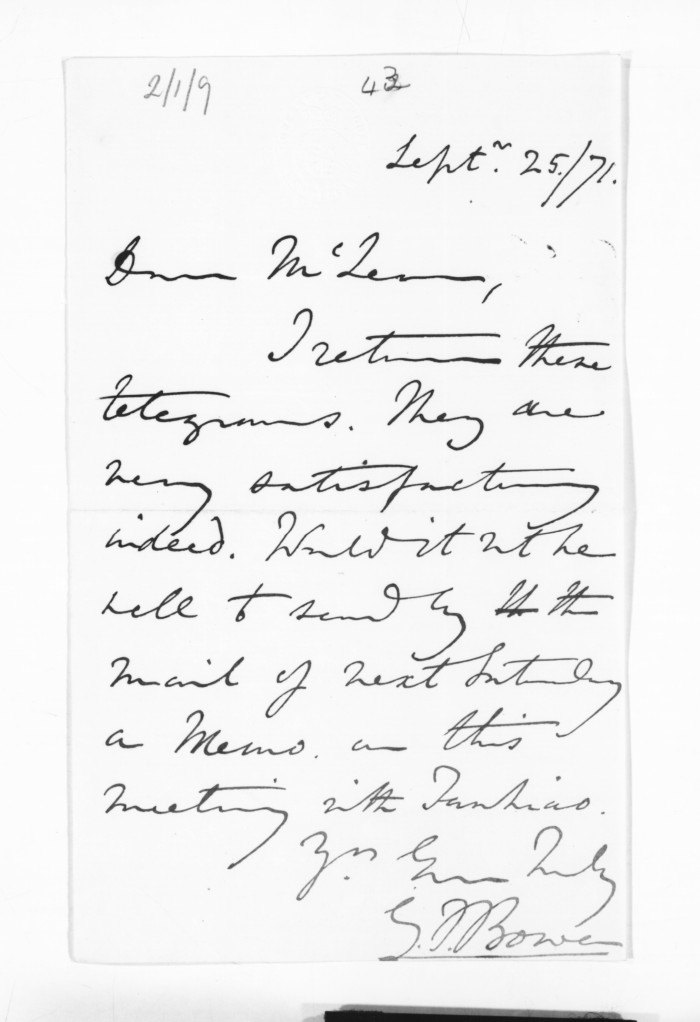 2/1/9
43
Septr. 25./71.
Dear McLean,
I return these
telegrams. They are
very satisfactory
indeed. Would it not be
well to send by th the
mail of next Saturday
a Memo. on this
meeting with Tawhiao.
Yrs Ever Truly
G.F.Bowen